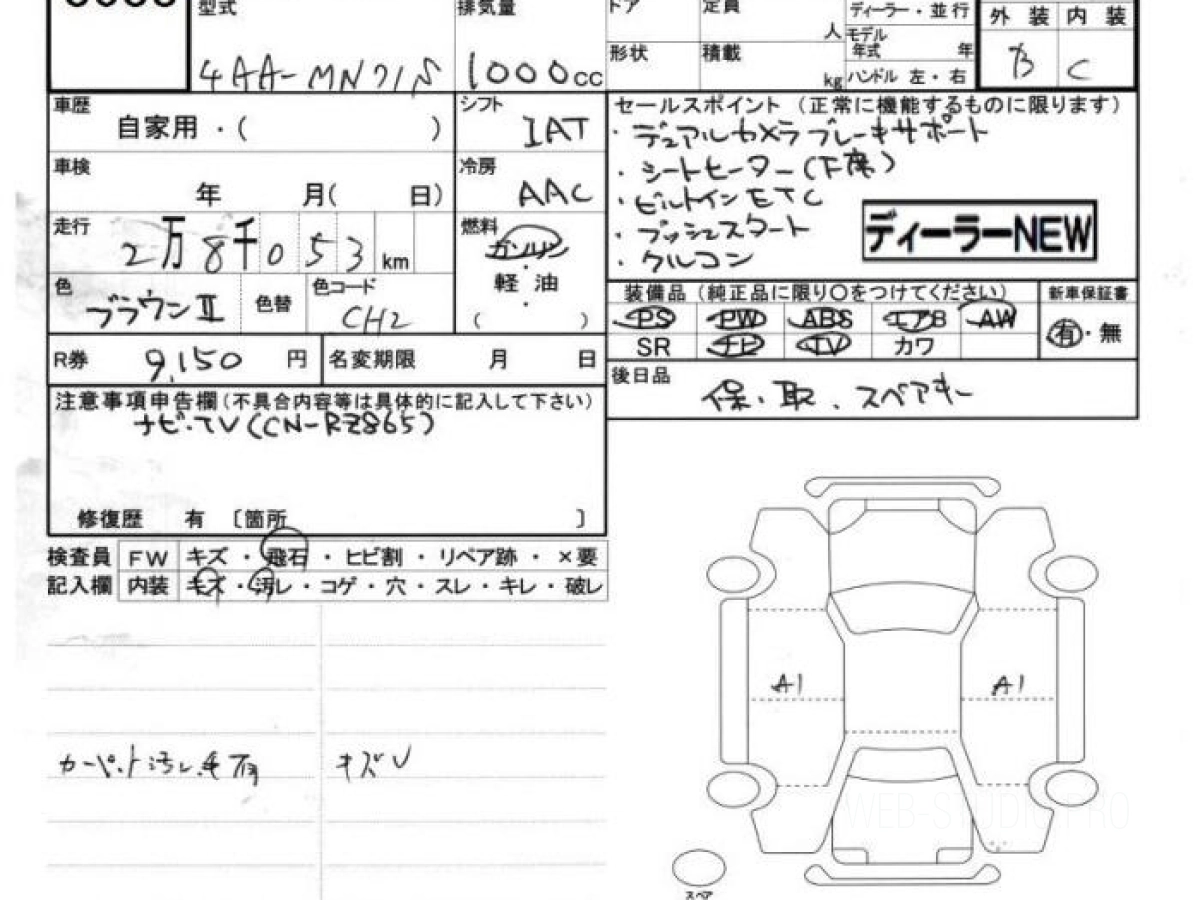 型式 排気量 ドア 定員 ディーラー・並行 外装 内装
人 モデル年式 年
形状 積載
4AA-MN71S 1000cc kg ハンドル 左・右 B C
車歴 シフト セールスポイント（正常に機能するものに限ります）
自家用・（ ） IAT ・デュアルカメラブレーキサポート
車検 冷房 ・シートヒーター(下席)
年 月( 日) AAC ・ビルトインETC
走行 燃料 ・プッシュスタート
2万8千053km ガソリン ディーラーNEW
・クルコン
色 色替 色コード ・軽油
ブラウンⅡ CH2 ・
( )
装備品（純正品に限り○をつけてください） 新車保証書
PS PW ABS エアB AW 有・無
SR ナビ TV カワ
R券 9,150 円 名変期限 月 日
後日品 保・取、スペアキー
注意事項申告欄(不具合内容等は具体的に記入して下さい)
ナビ・TV(CN-RZ865)
修復歴 有 〔箇所 〕
検査員 FW キズ・飛石・ヒビ割・リペア跡・×要
記入欄 内装 キズ・汚レ・コゲ・穴・スレ・キレ・破レ
A1 A1
カーペット汚レ キズU
WEB-STUDIO.PRO
スペア